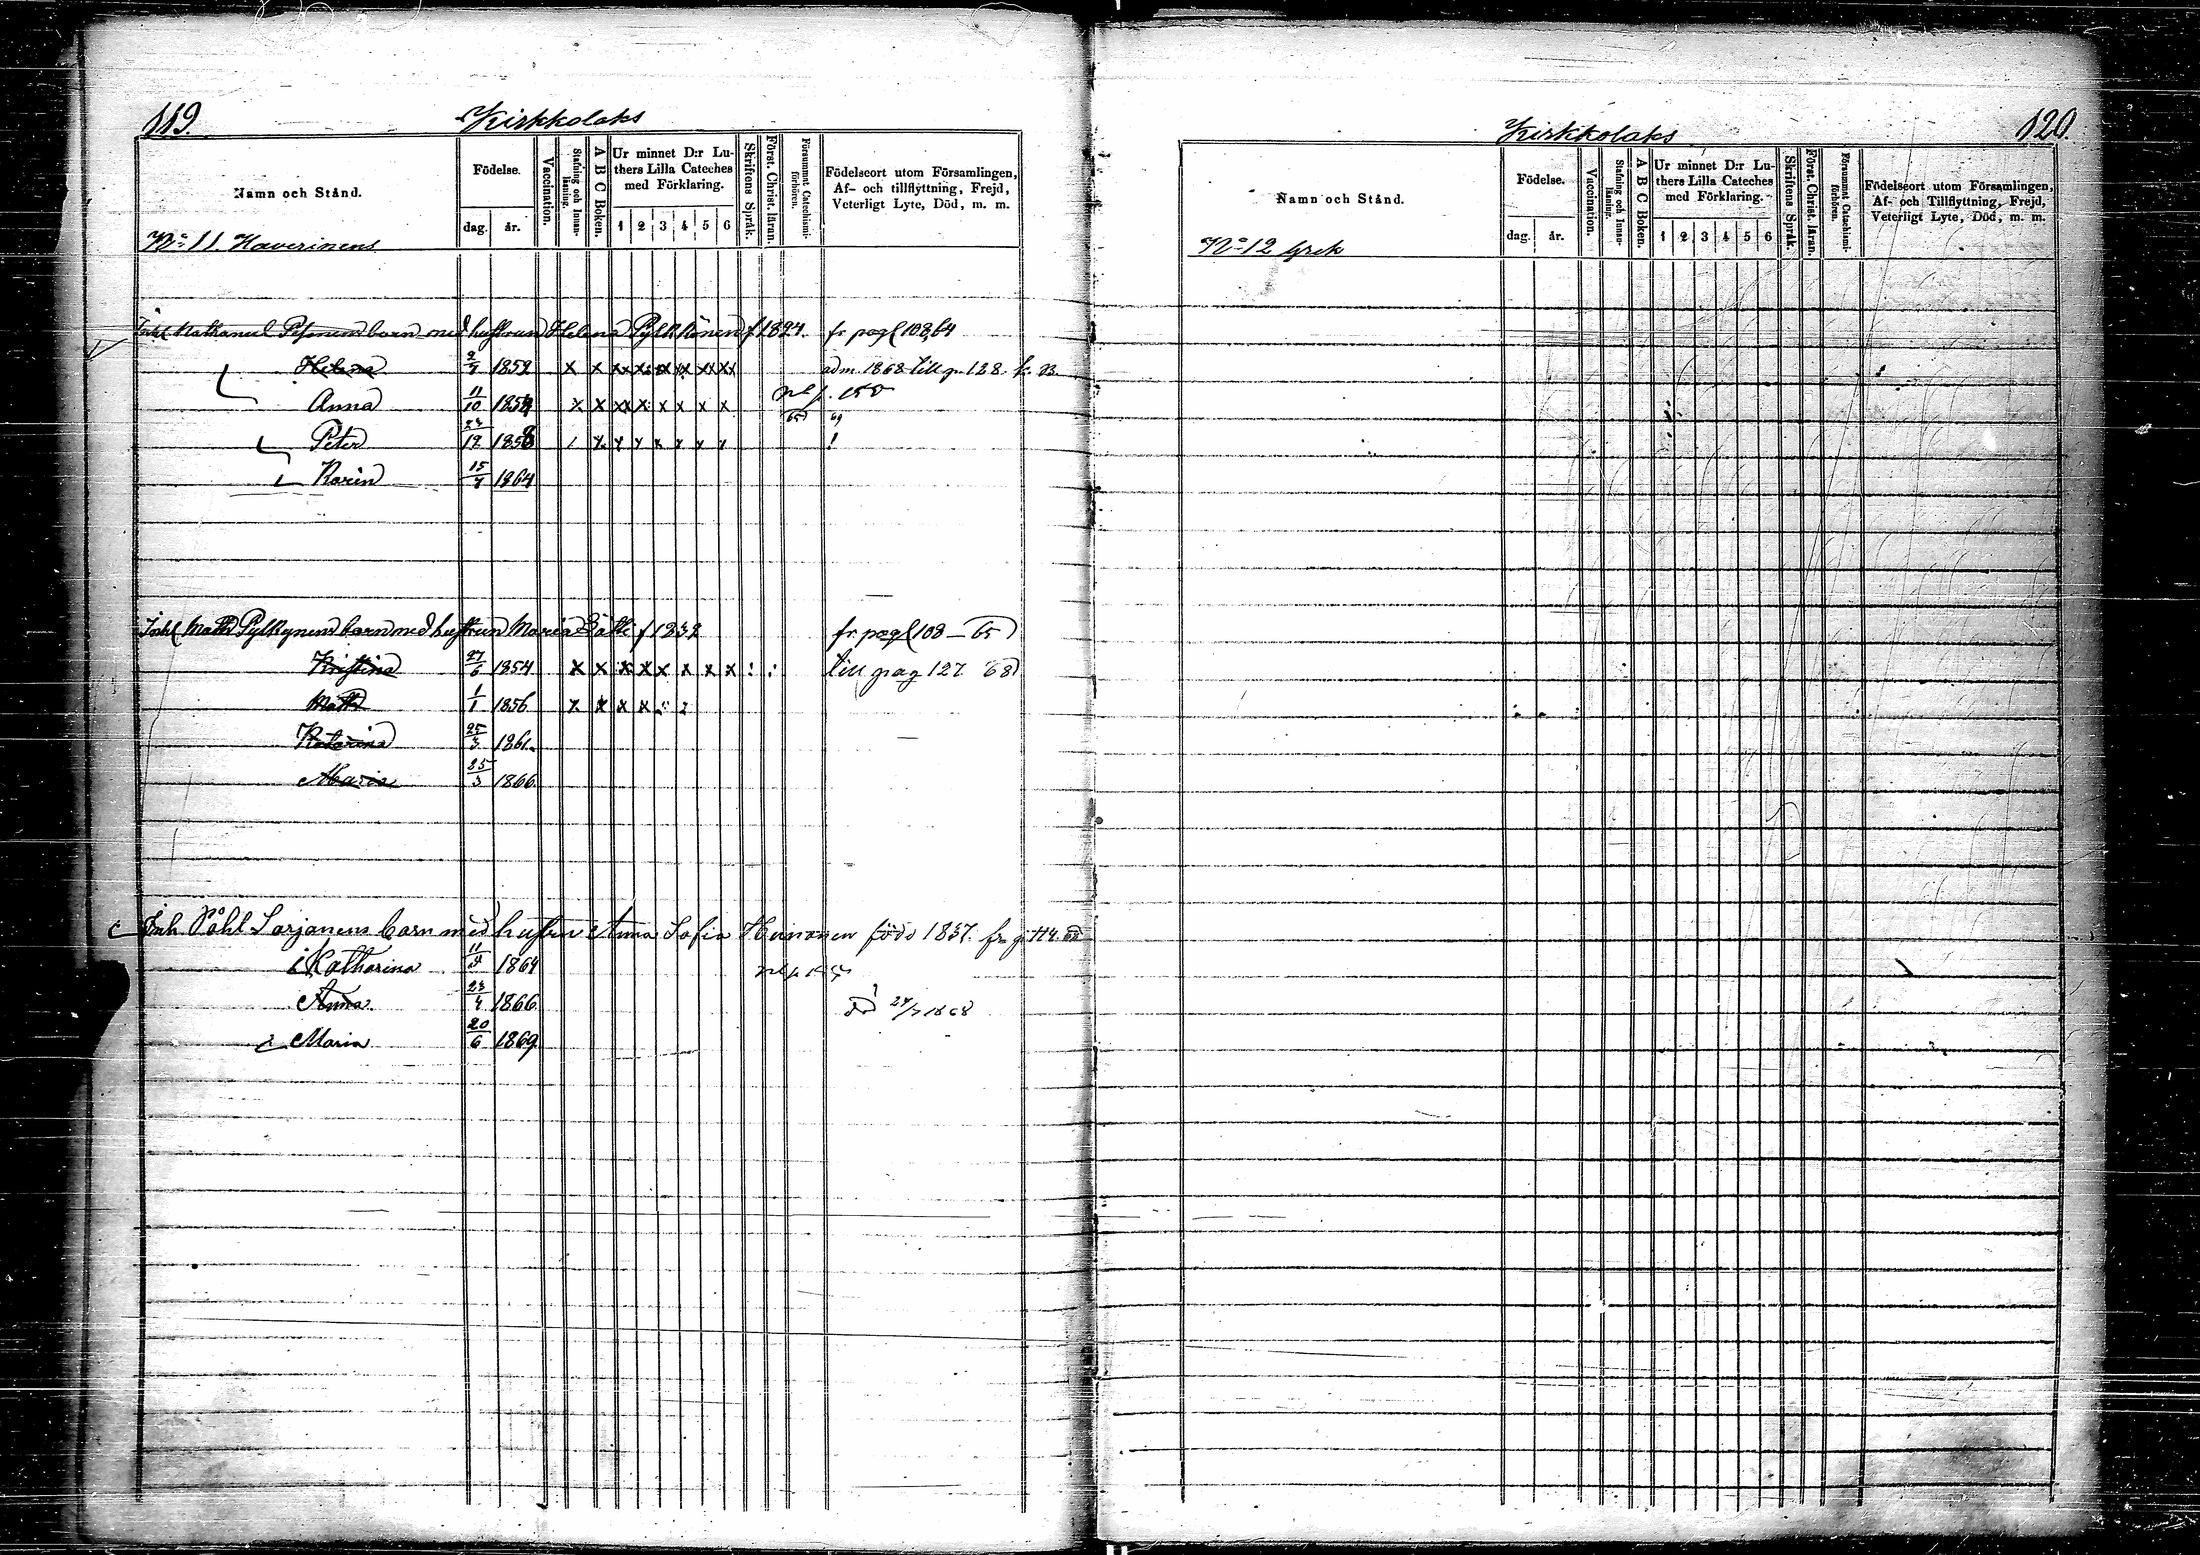 119.
Kirkkolaks
Namn och Stånd.
Födelse.
dag.
år.
Vaccination.
Stafning och Innanläsning.
A B C Boken.
Ur minnet D:r Luthers Lilla Cateches med Förklaring.
1 2 3 4 5 6
Skriftens Språk.
Först. Christ. läran.
Försummat Catechismiförhören.
Födelseort utom Församlingen,
Af- och tillflyttning, Frejd,
Veterligt Lyte, Död, m. m.
No 11 Haverinens
Inh Nathanael Pesonens barn med hustrun Helena Pylkkönen f 1824. fr pag 108, 64
Helena 2/7 1852 x x xx x: xx xx xx xx adm. 1868 till p. 128.
Anna 11/10 1854 x x xx x x x x x p. 150
65 69
Peter 23/12 1858 / x x x x x x x !
Karin 15/7 1864
Inh Math Pylkynens barn med hustrun Maria f 1832 fr pag 108 — 65
Kristina 27/6 1854 x x x x x x x x : : till pag 127. 68
Math 1/1 1856 x x x x : :
Katarina 25/3 1861.
Maria 25/3 1866.
Inh Påhl Sarjanens barn med hustru Anna Sofia född 1837. fr p. 114.
Katharina 11/9 1864
Anna. 23/4 1866. död 24/7 1868
Maria 20/6 1869.
Kirkkolaks
120.
Namn och Stånd.
Födelse.
dag.
år.
Vaccination.
Stafning och Innanläsnint.
A B C Boken.
Ur minnet D:r Luthers Lilla Cateches med Förklaring.
1 2 3 4 5 6
Skriftens Språk.
Först. Christ. läran.
Försummat Catechismiförhören.
Födelseort utom Församlingen,
Af- och Tillflyttning, Frejd,
Veterligt Lyte, Död, m. m.
No 12 Grek